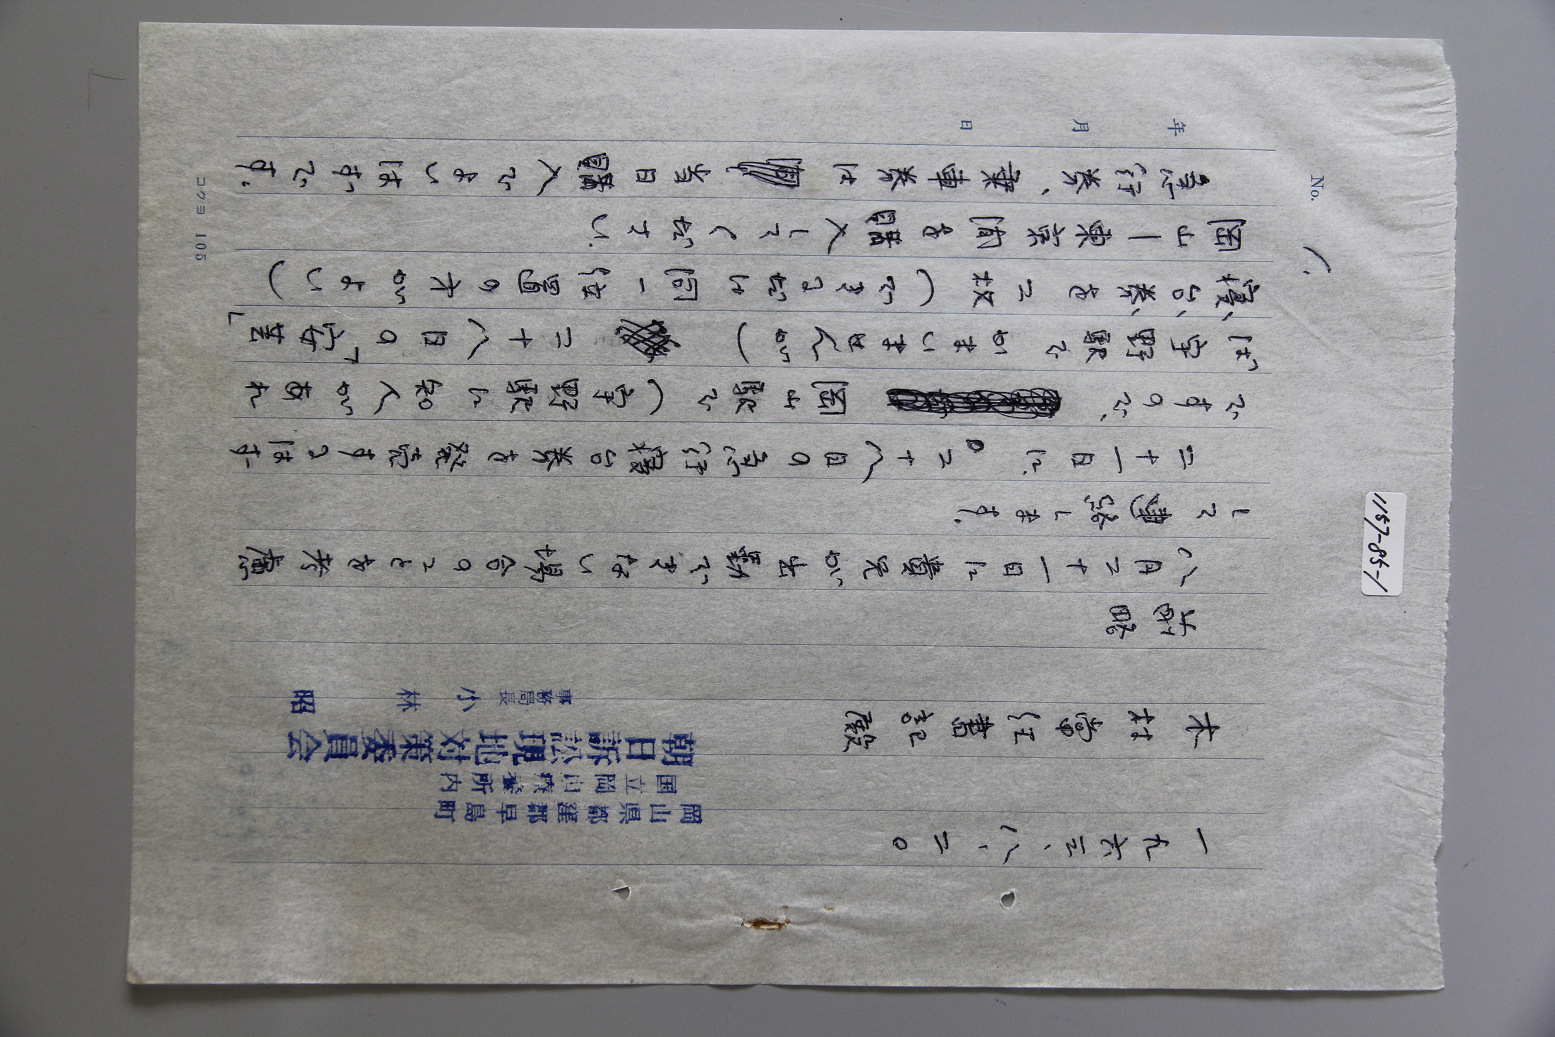 No. 1.
一九六三、八、二〇
岡山県都窪郡早島町
国立岡山療養所内
朝日訴訟現地対策委員会
事務局長 小林 昭
木村常任書記殿
前略
八月二十一日に貴兄が出勤できない場合のことを考慮
して連絡します。
二十一日に、二十八日の急行寝台券を発売するはず
ですので、岡山駅で(宇野駅に知人があれ
ば、宇野駅でかまいませんが)二十八日の「安芸」
寝台券を二枚(できるだけ同一位置の方がよい)
岡山―東京間を購入してください。
急行券、乗車券は当日購入でよいはずです。
年 月 日
コクヨ 105
1157-85-1